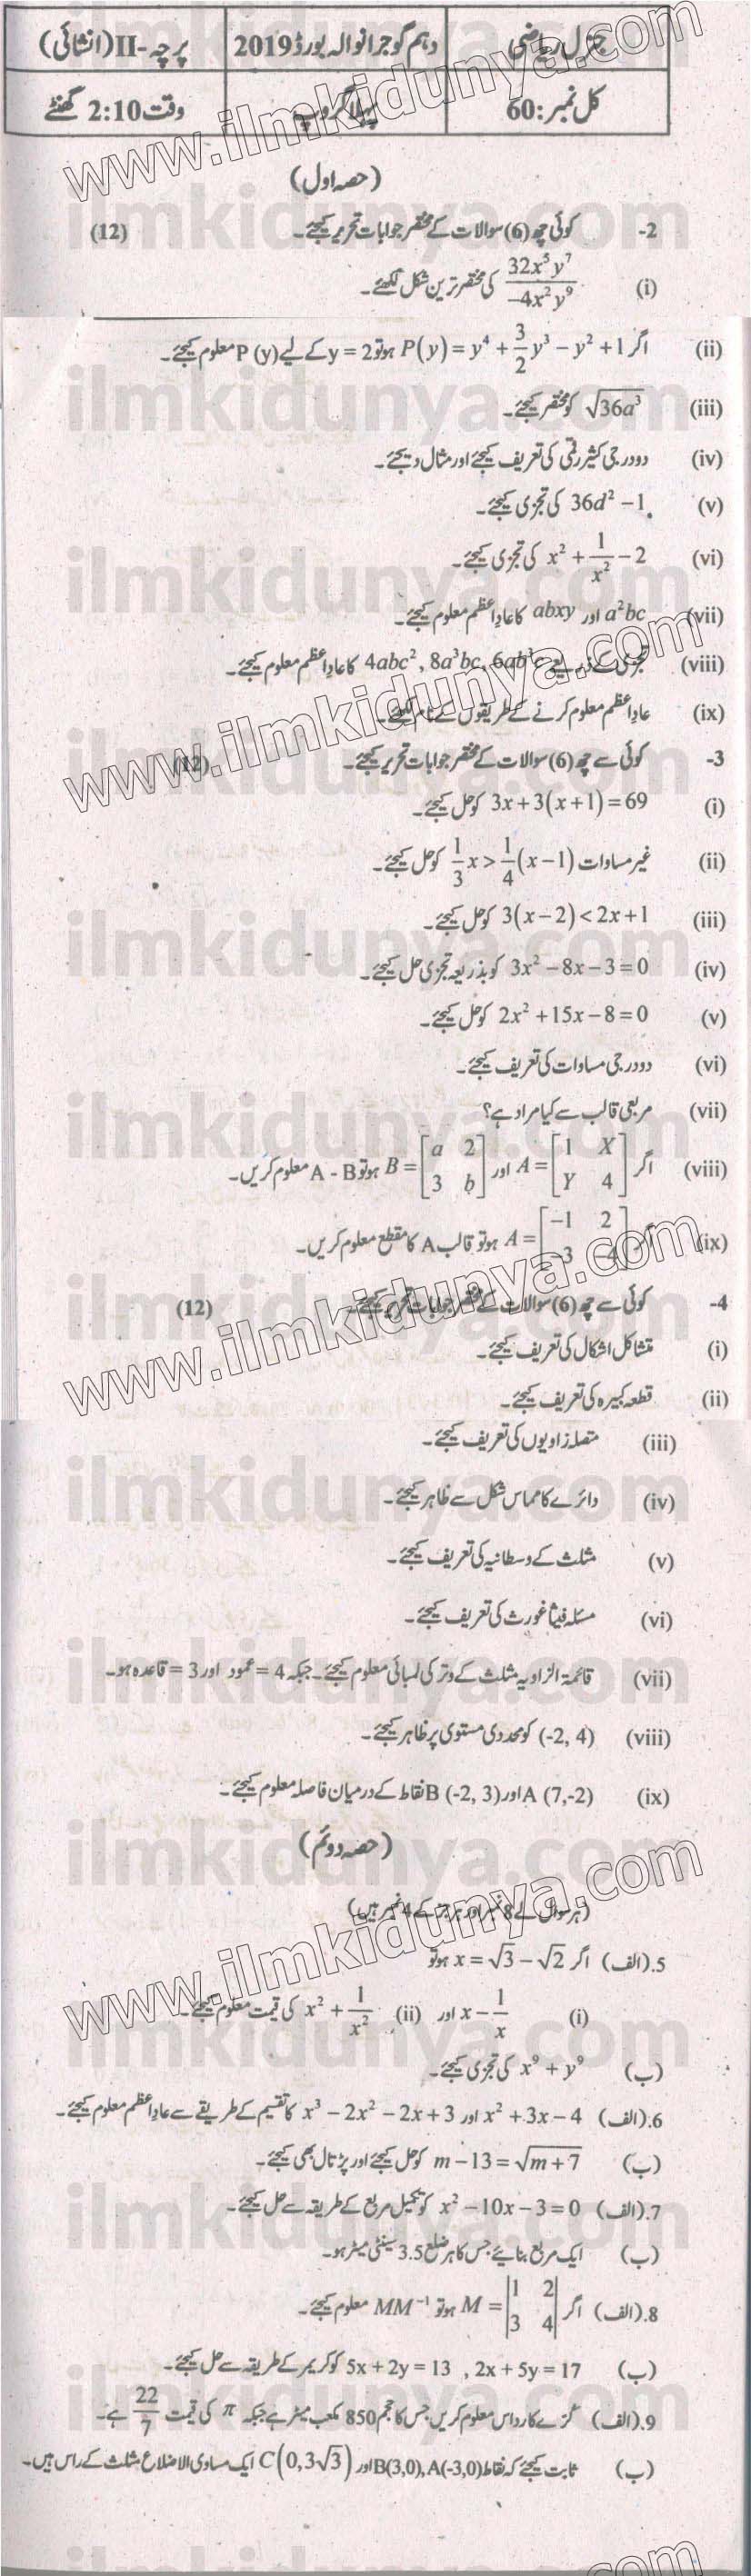 جنرل ریاضی دہم گوجرانوالہ بورڈ 2019 پرچہ -II (انشائی)
کل نمبر: 60 پہلا گروپ وقت 2:10 گھنٹے
(حصہ اول)
2- کوئی چھ (6) سوالات کے مختصر جوابات تحریر کیجئے۔ (12)
(i) 32x⁵y⁷ / -4x²y⁹ کی مختصر ترین شکل لکھئے۔
(ii) اگر P(y) = y⁴ + 3/2 y³ − y² + 1 ہو تو y = 2 کے لیے P (y) معلوم کیجئے۔
(iii) √36a³ کو مختصر کیجئے۔
(iv) دو درجی کثیر رقمی کی تعریف کیجئے اور مثال دیجئے۔
(v) 36d² −1 کی تجزی کیجئے۔
(vi) x² + 1/x² − 2 کی تجزی کیجئے۔
(vii) a²bc اور abxy کا عاد اعظم معلوم کیجئے۔
(viii) تجزی کے ذریعے 4abc², 8a³bc, 6ab³c کا عاد اعظم معلوم کیجئے۔
(ix) عاد اعظم معلوم کرنے کے طریقوں کے نام لکھئے۔
3- کوئی سے چھ (6) سوالات کے مختصر جوابات تحریر کیجئے۔ (12)
(i) 3x + 3(x + 1) = 69 کو حل کیجئے۔
(ii) غیر مساوات 1/3 x > 1/4 (x − 1) کو حل کیجئے۔
(iii) 3(x − 2) < 2x + 1 کو حل کیجئے۔
(iv) 3x² − 8x − 3 = 0 کو بذریعہ تجزی حل کیجئے۔
(v) 2x² + 15x − 8 = 0 کو حل کیجئے۔
(vi) دو درجی مساوات کی تعریف کیجئے۔
(vii) مربعی قالب سے کیا مراد ہے؟
(viii) اگر A = [1 X; Y 4] اور B = [a 2; 3 b] ہو تو A - B معلوم کریں۔
(ix) اگر A = [−1 2; −3 −4] ہو تو قالب A کا مقطع معلوم کریں۔
4- کوئی سے چھ (6) سوالات کے مختصر جوابات تحریر کیجئے۔ (12)
(i) متشاکل اشکال کی تعریف کیجئے۔
(ii) قطعہ کبیرہ کی تعریف کیجئے۔
(iii) متصلہ زاویوں کی تعریف کیجئے۔
(iv) دائرے کا مماس شکل سے ظاہر کیجئے۔
(v) مثلث کے وسطانیہ کی تعریف کیجئے۔
(vi) مسئلہ فیثا غورث کی تعریف کیجئے۔
(vii) قائمۃ الزاویہ مثلث کے وتر کی لمبائی معلوم کیجئے۔ جبکہ 4 = عمود اور 3 = قاعدہ ہو۔
(viii) (-2, 4) کو محددی مستوی پر ظاہر کیجئے۔
(ix) A (7,-2) اور B (-2, 3) نقاط کے درمیان فاصلہ معلوم کیجئے۔
(حصہ دوئم)
(ہر سوال کے 8 نمبر اور ہر جز کے 4 نمبر ہیں)
5. (الف) اگر x = √3 − √2 ہو تو
(i) x − 1/x اور (ii) x² + 1/x² کی قیمت معلوم کیجئے۔
(ب) x⁹ + y⁹ کی تجزی کیجئے۔
6. (الف) x² + 3x − 4 اور x³ − 2x² − 2x + 3 کا تقسیم کے طریقے سے عاد اعظم معلوم کیجئے۔
(ب) m − 13 = √m + 7 کو حل کیجئے اور پڑتال بھی کیجئے۔
7. (الف) x² − 10x − 3 = 0 کو تکمیل مربع کے طریقہ سے حل کیجئے۔
(ب) ایک مربع بنائیے جس کا ہر ضلع 3.5 سینٹی میٹر ہو۔
8. (الف) اگر M = |1 2; 3 4| ہو تو MM⁻¹ معلوم کیجئے۔
(ب) 5x + 2y = 13 , 2x + 5y = 17 کو کریمر کے طریقہ سے حل کیجئے۔
9. (الف) کُرے کا رداس معلوم کریں جس کا حجم 850 مکعب میٹر ہے جبکہ π کی قیمت 22/7 ہے۔
(ب) ثابت کیجئے کہ نقاط A(-3,0), B(3,0) اور C(0,3√3) ایک مساوی الاضلاع مثلث کے راس ہیں۔
ilmkidunya.com
www.ilmkidunya.com